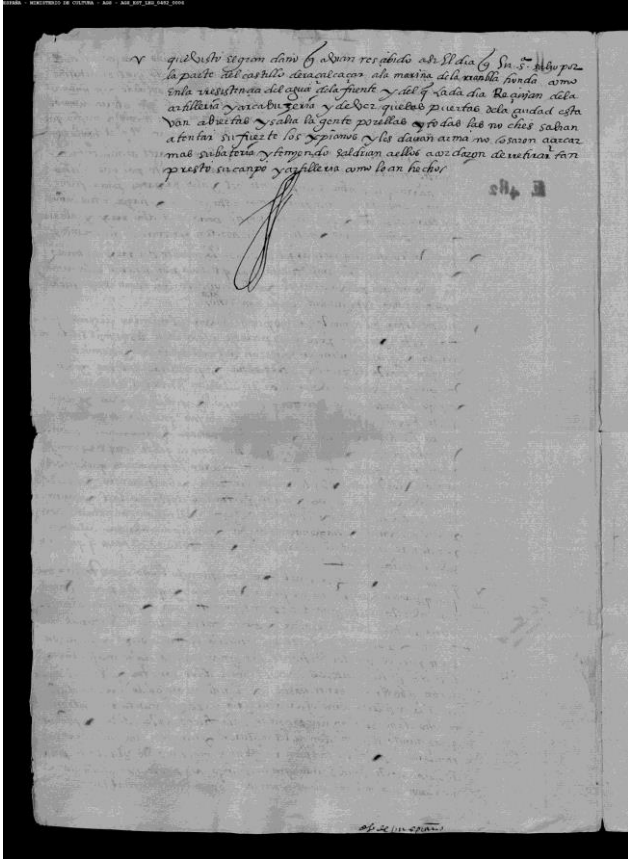 ESPAÑA - MINISTERIO DE CULTURA - AGS - AGS_EST_LEG_0482_0004
que visto el gran daño q avian rescibido asi El dia q su s.ª salio por
la parte del castillo de raçalcaçar ala marina dela rambla honda como
enla rresistençia del agua dela fuente y del q cada dia Reçibian dela
artilleria y arcabuzeria y de ver que las puertas dela çiudad esta
van abiertas y salia la gente por ellas y todas las noches salian
a tentar su fuerte los xpianos y les davan arma no osaron açercar
mas su bateria y temyendo saldrian a ellos acordaron de rretirar tan
presto su canpo y artilleria como lo an hecho
E. 482